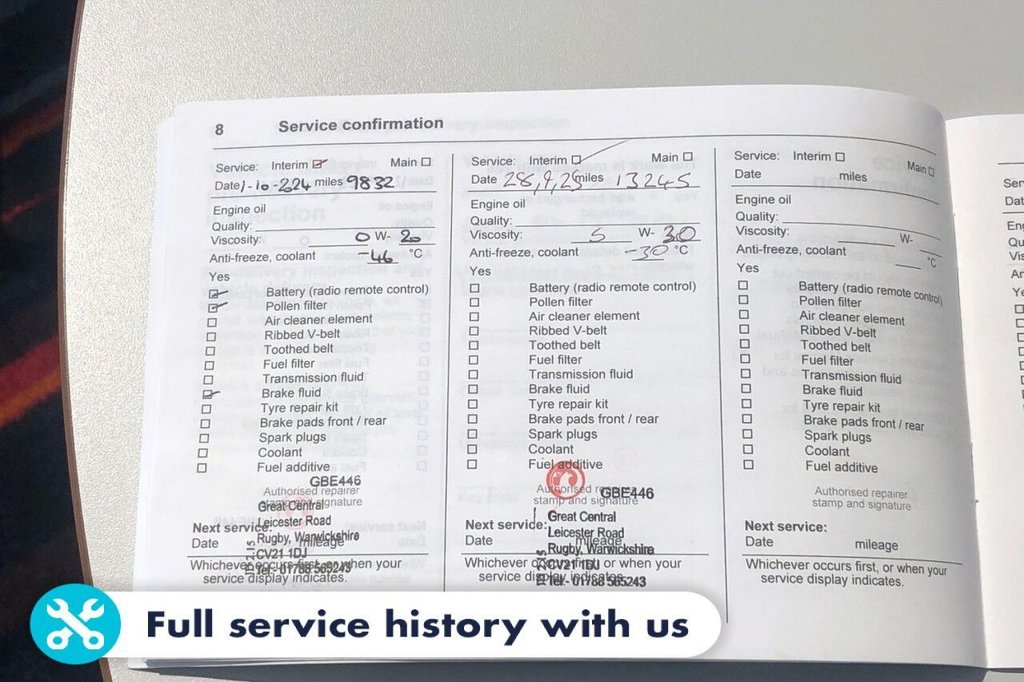 8 Service confirmation
Service: Interim Main
Date 1-10-224 miles 9832
Engine oil
Quality:
Viscosity: 0 W- 20
Anti-freeze, coolant -46 °C
Yes
Battery (radio remote control)
Pollen filter
Air cleaner element
Ribbed V-belt
Toothed belt
Fuel filter
Transmission fluid
Brake fluid
Tyre repair kit
Brake pads front / rear
Spark plugs
Coolant
Fuel additive
GBE446
Authorised repairer
stamp and signature
Great Central
Leicester Road
Rugby, Warwickshire
CV21 1DJ
Tel - 01788 565243
Next service:
Date mileage
Whichever occurs first, or when your
service display indicates.
Service: Interim Main
Date 28,9,25 miles 13245
Engine oil
Quality:
Viscosity: 5 W- 30
Anti-freeze, coolant -30 °C
Yes
Battery (radio remote control)
Pollen filter
Air cleaner element
Ribbed V-belt
Toothed belt
Fuel filter
Transmission fluid
Brake fluid
Tyre repair kit
Brake pads front / rear
Spark plugs
Coolant
Fuel additive
Authorised repairer
stamp and signature
GBE446
Great Central
Leicester Road
Rugby, Warwickshire
CV21 1DJ
Tel - 01788 565243
Next service:
Date mileage
Whichever occurs first, or when your
service display indicates.
Service: Interim Main
Date miles
Engine oil
Quality:
Viscosity: W-
Anti-freeze, coolant °C
Yes
Battery (radio remote control)
Pollen filter
Air cleaner element
Ribbed V-belt
Toothed belt
Fuel filter
Transmission fluid
Brake fluid
Tyre repair kit
Brake pads front / rear
Spark plugs
Coolant
Fuel additive
Authorised repairer
stamp and signature
Next service:
Date mileage
Whichever occurs first, or when your
service display indicates.
Full service history with us